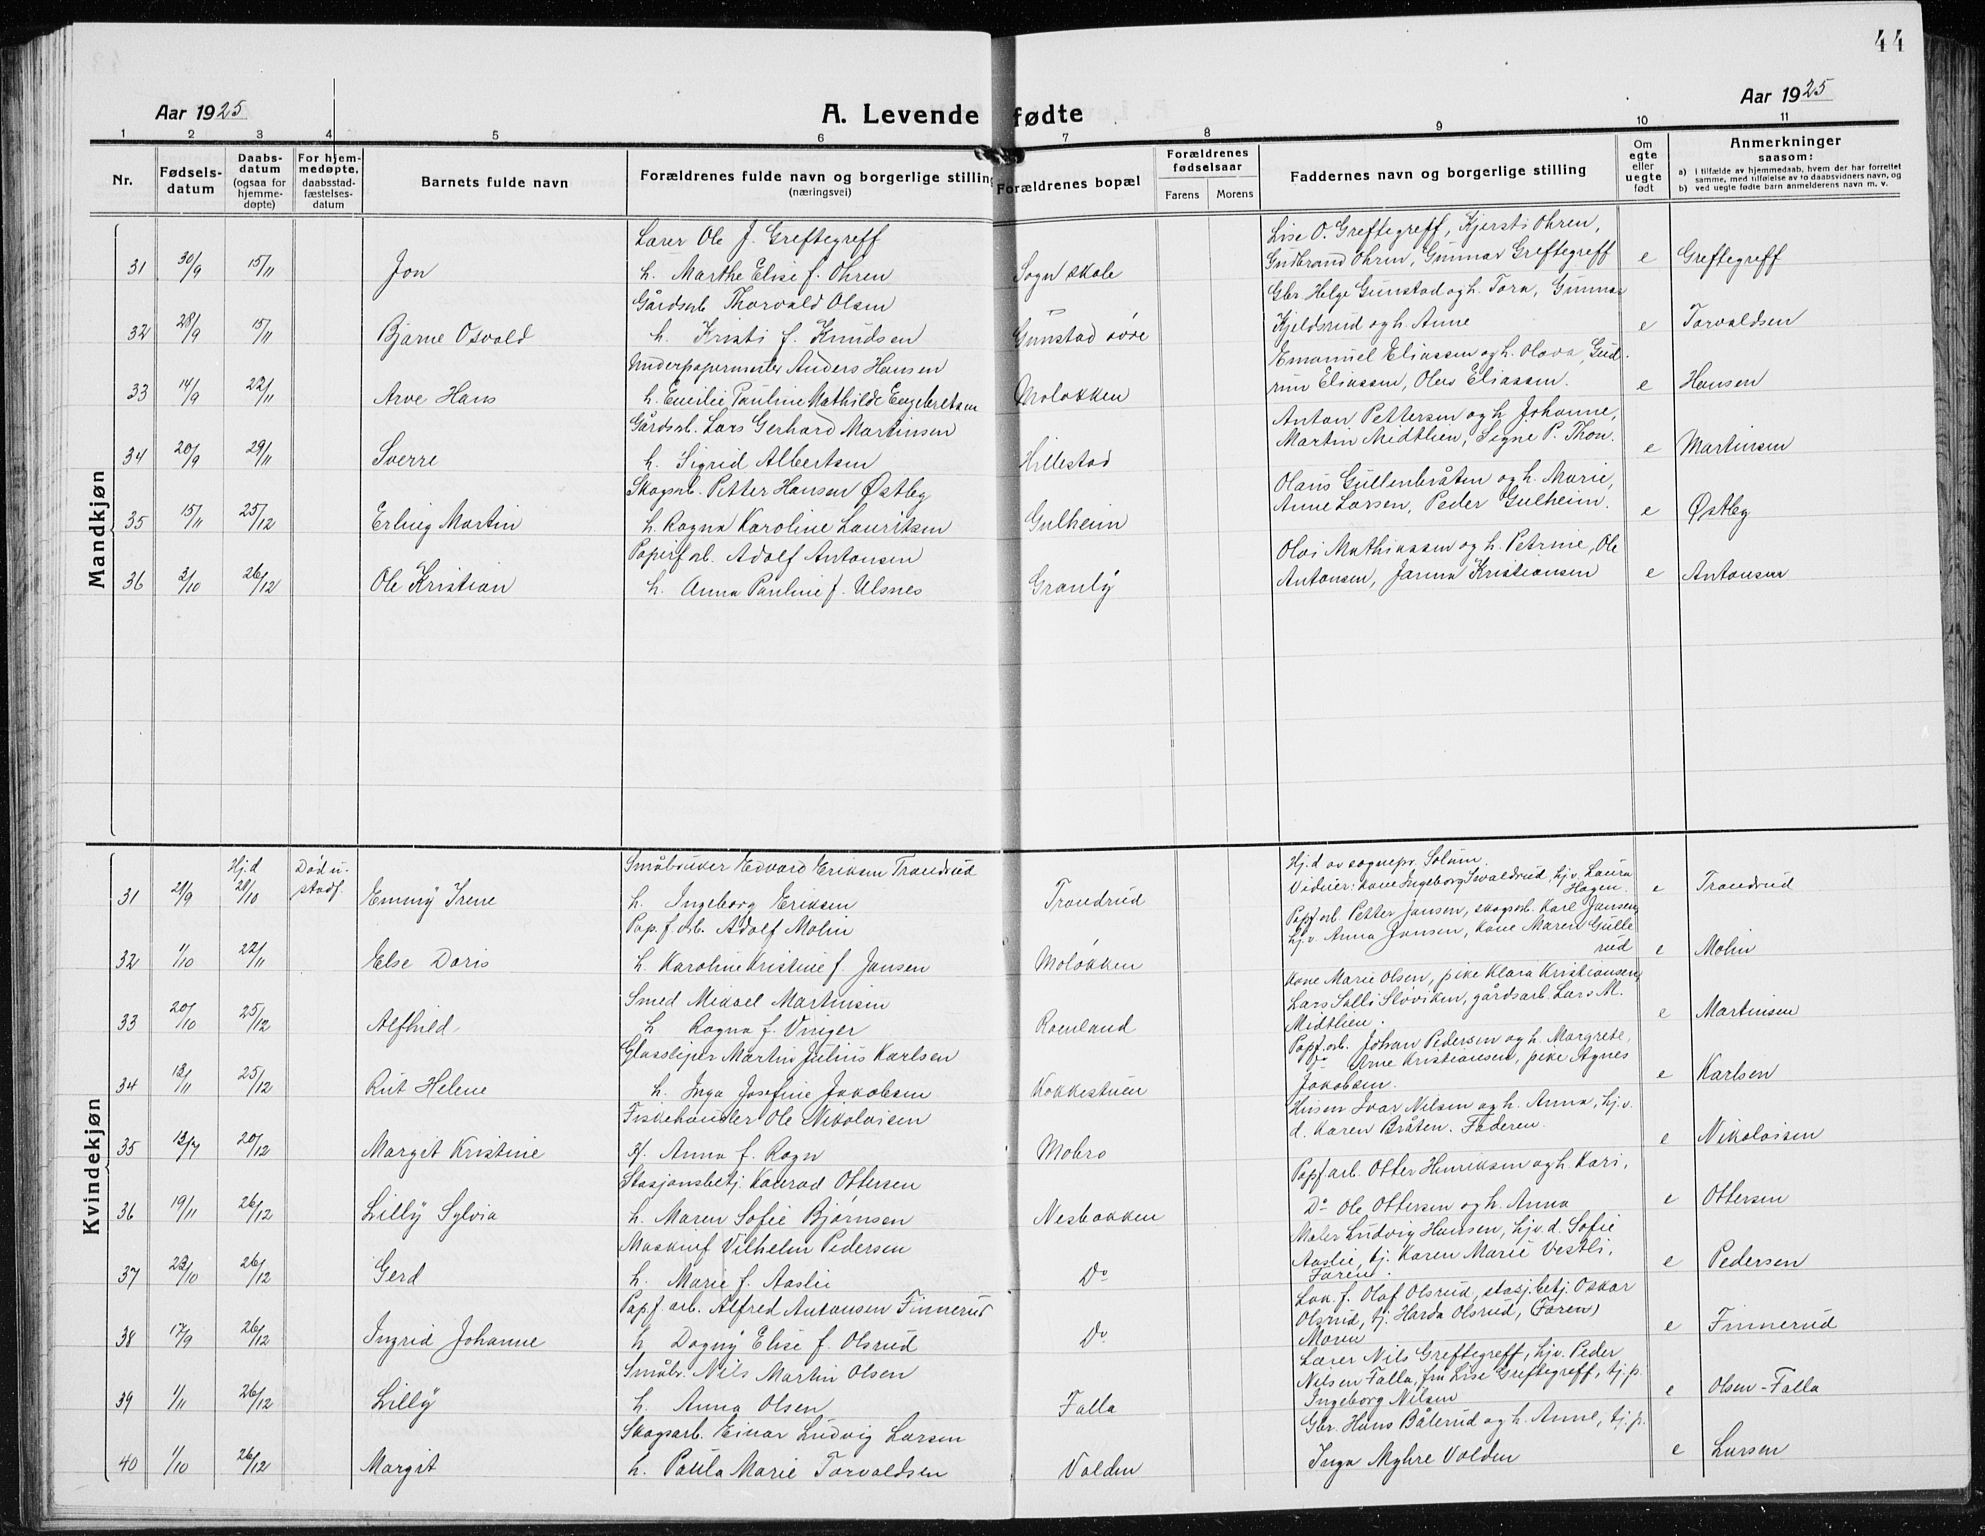 44
Aar 1925
A. Levende fødte
Aar 1925
1 2 3 4 5 6 7 8 9 10 11
Nr.
Fødsels-
datum
Daabs-
datum
(ogsaa for
hjemme-
døpte)
For hjem-
medøpte.
daabsstad-
fæstelses-
datum
Barnets fulde navn
Forældrenes fulde navn og borgerlige stilling
(næringsvei)
Forældrenes bopæl
Forældrenes
fødselsaar
Farens Morens
Faddernes navn og borgerlige stilling
Om
egte
eller
uegte
født
Anmerkninger
saasom:
a) i tilfælde av hjemmedaab, hvem der har forrettet
samme, med tilføielse av to daabsvidners navn, og
b) ved uegte fødte barn anmelderens navn m. v.
Mandkjøn
Lærer Ole J. Greftegreff Lise O. Greftegreff, Kjersti Ohren,
31 30/9 15/11 Jon h. Marthe Elise f. Ohren Sogn skole Gudbrand Ohren, Gunnar Greftegreff e Greftegreff
Gårdsarb. Thorvald Olsen Gbr Helge Gunstad og h. Tora, Gunnar
32 28/9 15/11 Bjarne Osvald h. Kristi f. Knudsen Gunstad øvre Kjeldsrud og h. Anne e Torvaldsen
Underpapermester Anders Hansen Emanuel Eliassen og h. Olava, Gud-
33 14/9 22/11 Arve Hans h. Emilie Pauline Mathilde Engebretsen Moløkken run Eliassen, Olav Eliassen. e Hansen
Gårdsarb. Lars Gerhard Martinsen Anton Pettersen og h. Johanne,
34 20/9 29/11 Sverre h. Sigrid Albertsen Hillestad Martin Midtlien, Signe P. Thon. e Martinsen
Skogsarb. Petter Hansen Østby Olaus Gullenbråten og h. Marie,
35 15/11 25/12 Erling Martin h. Ragna Karoline Lauritsen Gulheim Anne Larsen, Peder Gulheim. e Østby
Papirf.arb. Adolf Antonsen Olai Mathiassen og h. Petrine, Ole
36 3/10 26/12 Ole Kristian h. Anna Pauline f. Ulsnes Granly Antonsen, Janna Kristiansen e Antonsen
Kvindekjøn
Hj.d Død u. Småbruker Edvard Eriksen Trandrud Hj.d av sognepr. Solum.
31 21/9 21/10 stadf. Emmy Irene h. Ingeborg Eriksen Trondrud Vidner: kone Ingeborg Svaldrud, hj.v. Laura Hagen. e Trandrud
Pap.f.arb. Adolf Molin Papf.arb. Petter Jansen, skogsarb. Karl Jansen,
32 1/10 22/11 Else Doris h. Karoline Kristine f. Jansen Moløkken hj.v. Anna Jansen, kone Maren Gulle rud e Molin
Smed Mikael Martinsen kone Marie Olsen, pike Klara Kristiansen,
33 20/10 25/12 Alfhild h. Ragna f. Uniger Roenland Lars Salli Sløviken, gårdsarb. Lars M. Midtlien. e Martinsen
Glassliper Martin Julius Karlsen Papf.arb. Johan Pedersen og h. Margrete,
34 13/11 25/12 Rut Helene h. Inga Josefine Jakobsen Kokkestuen Do Arne Kristiansen, pike Agnes Jakobsen. e Karlsen
Fiskehandler Ole Nikolaisen Husm Ivar Nilsen og h. Anna, hj.v.
35 13/7 20/12 Margit Kristine H. Anna f. Rogn Mobro d. Karen Bråten. Faderen. e Nikolaisen
Stasjonsbetj. Konrad Ottersen Papf arb. Otter Henriksen og h. Kari,
36 19/11 26/12 Lilly Sylvia h. Maren Sofie Bjørnsen Nesbakken Do Ole Ottersen og h. Anna e Ottersen
Maskinf Vilhelm Pedersen Maler Ludvig Hansen, hj.v.d. Sofie
37 23/10 26/12 Gerd h. Marie f. Aaslie Do Aaslie, tj. Karen Marie Vestli, Faren. e Pedersen
Papf arb. Alfred Antonsen Finnerud Lok. f. Olaf Olsrud, stasj.betj. Oskar
38 17/9 26/12 Ingrid Johanne h. Dagny Elise f. Olsrud Do Olsrud, tj. Harda Olsrud, (Faren) Moren e Finnerud
Småbr. Nils Martin Olsen Lærer Nils Greftegreff, hj.v. Peder
39 1/11 26/12 Lilly h. Anna Olsen Falla Nilsen Falla, fru Lise Greftegreff, tj.p. Ingeborg Nilsen e Olsen-Falla
Skogsarb. Einar Ludvig Larsen Gbr. Hans Båterud og h. Anne, tj.p.
40 1/10 26/12 Margit h. Paula Marie Torvaldsen Volden Inga Myhre Volden e Larsen